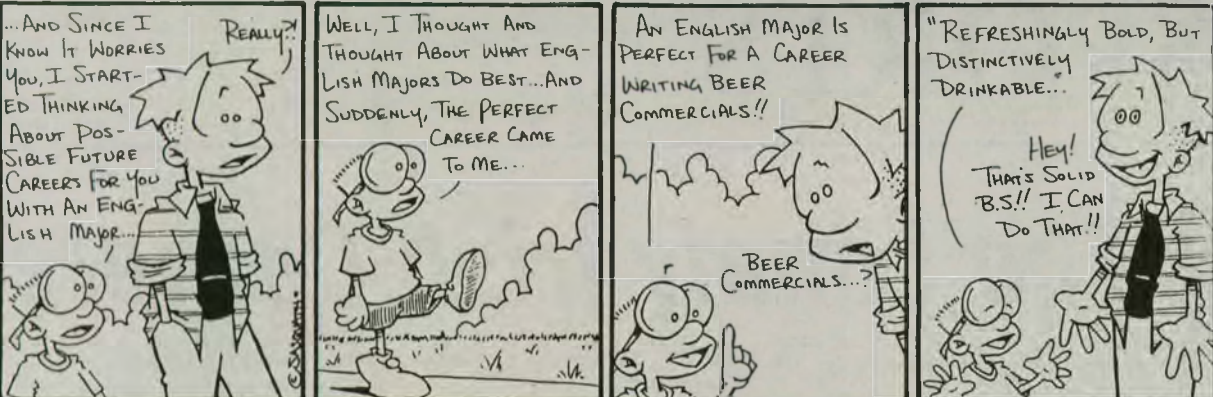 ...AND SINCE I
KNOW IT WORRIES
YOU, I START-
ED THINKING
ABOUT POS-
SIBLE FUTURE
CAREERS FOR YOU
WITH AN ENG-
LISH MAJOR...
REALLY?!
WELL, I THOUGHT AND
THOUGHT ABOUT WHAT ENG-
LISH MAJORS DO BEST...AND
SUDDENLY, THE PERFECT
CAREER CAME
TO ME...
AN ENGLISH MAJOR IS
PERFECT FOR A CAREER
WRITING BEER
COMMERCIALS!!
BEER
COMMERCIALS...?
"REFRESHINGLY BOLD, BUT
DISTINCTIVELY
DRINKABLE..."
HEY!
THAT'S SOLID
B.S.!! I CAN
DO THAT!!